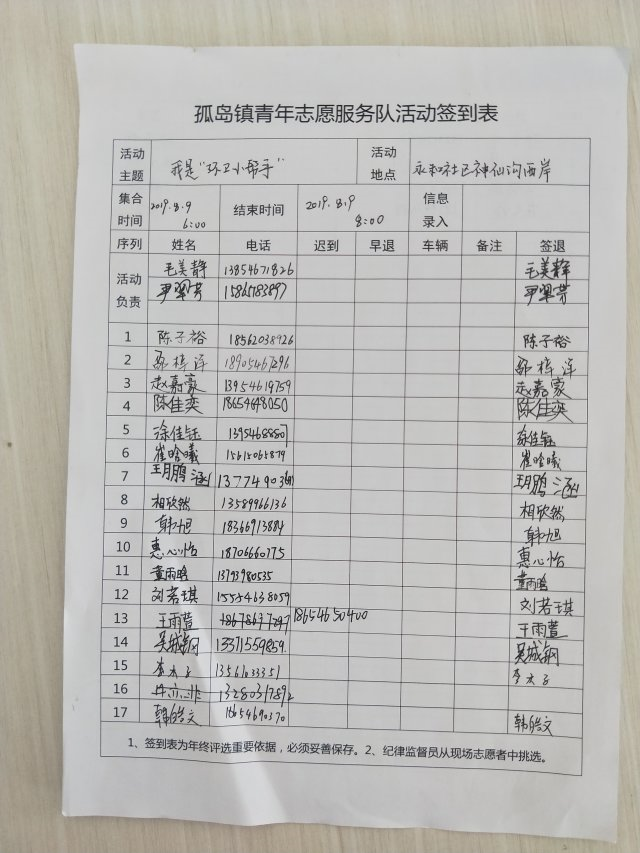 孤岛镇青年志愿服务队活动签到表
活动主题 我是“环卫小帮手” 活动地点 永和社区神仙沟西岸
集合时间 2019.8.9 6:00 结束时间 2019.8.9 8:00 信息录入
序列 姓名 电话 迟到 早退 车辆 备注 签退
活动负责 毛美静 13854671826 毛美静
尹翠芳 15865783897 尹翠芳
1 陈子裕 18562038926 陈子裕
2 梓洋 18905467296 梓洋
3 赵嘉豪 13954619759 赵嘉豪
4 陈佳奕 18654648050 陈佳奕
5 徐佳钰 13954688807 徐佳钰
6 崔晗曦 15615065879 崔晗曦
7 鹏涵 鹏涵
8 相欣然 13589966136 相欣然
9 韩旭 18366913884 韩旭
10 惠心怡 18706660775 惠心怡
11 董雨晗 13793980535 董雨晗
12 刘若琪 15554638059 刘若琪
13 王雨萱 18654650400 王雨萱
14 吴城钢 13371559859 吴城钢
15 李 子 13561033351 李 子
16 13280317892
17 韩皓文 18654690370 韩皓文
1、签到表为年终评选重要依据，必须妥善保存。2、纪律监督员从现场志愿者中挑选。